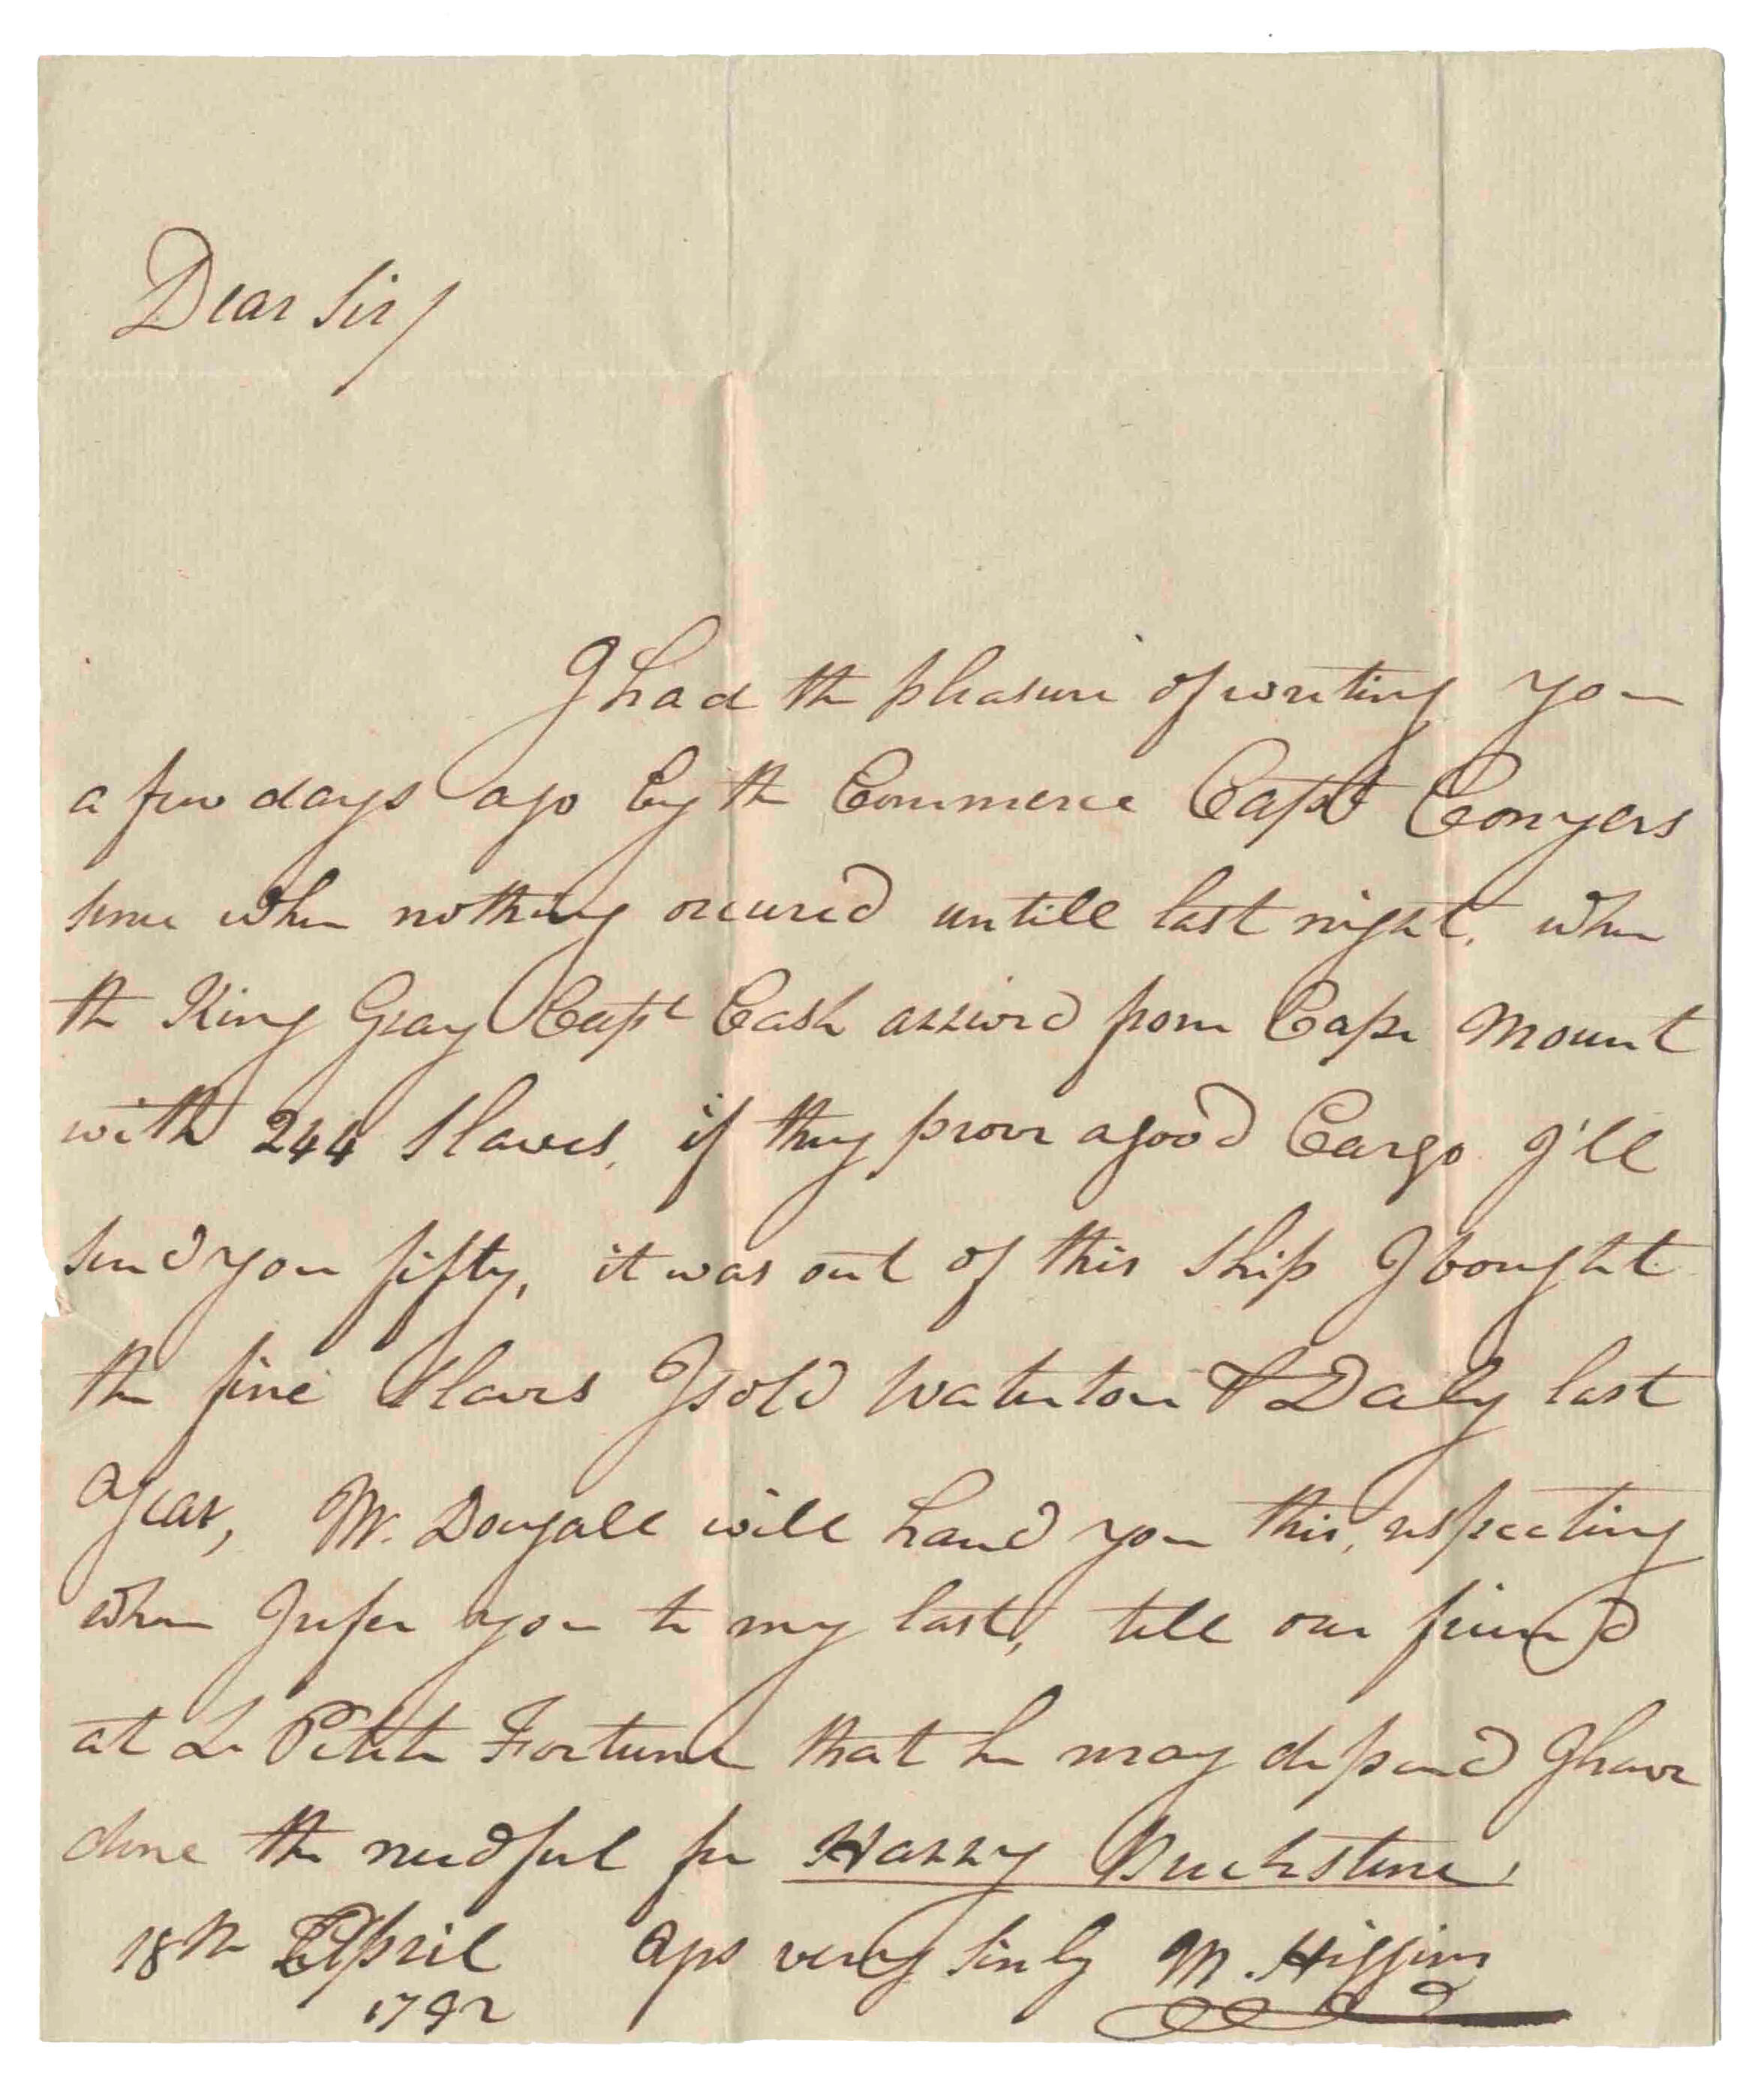 Dear Sir/
I had the pleasure of writing you
a few days ago by the Commerce Capt Conyers
since when nothing occured untill last night, when
the King Gray Capt Cash arrived from Cape Mount
with 244 Slaves, if they prove a good Cargo I'll
send you fifty, it was out of this Ship I bought
the fine Slaves I sold Waterton & Daly last
Year, Mr. Dougall will hand you this, respecting
whom I refer you to my last, tell our friend
at Le Petite Fortune that he may depend I have
done the needful for Harry
18th April very M. Higgins
1792